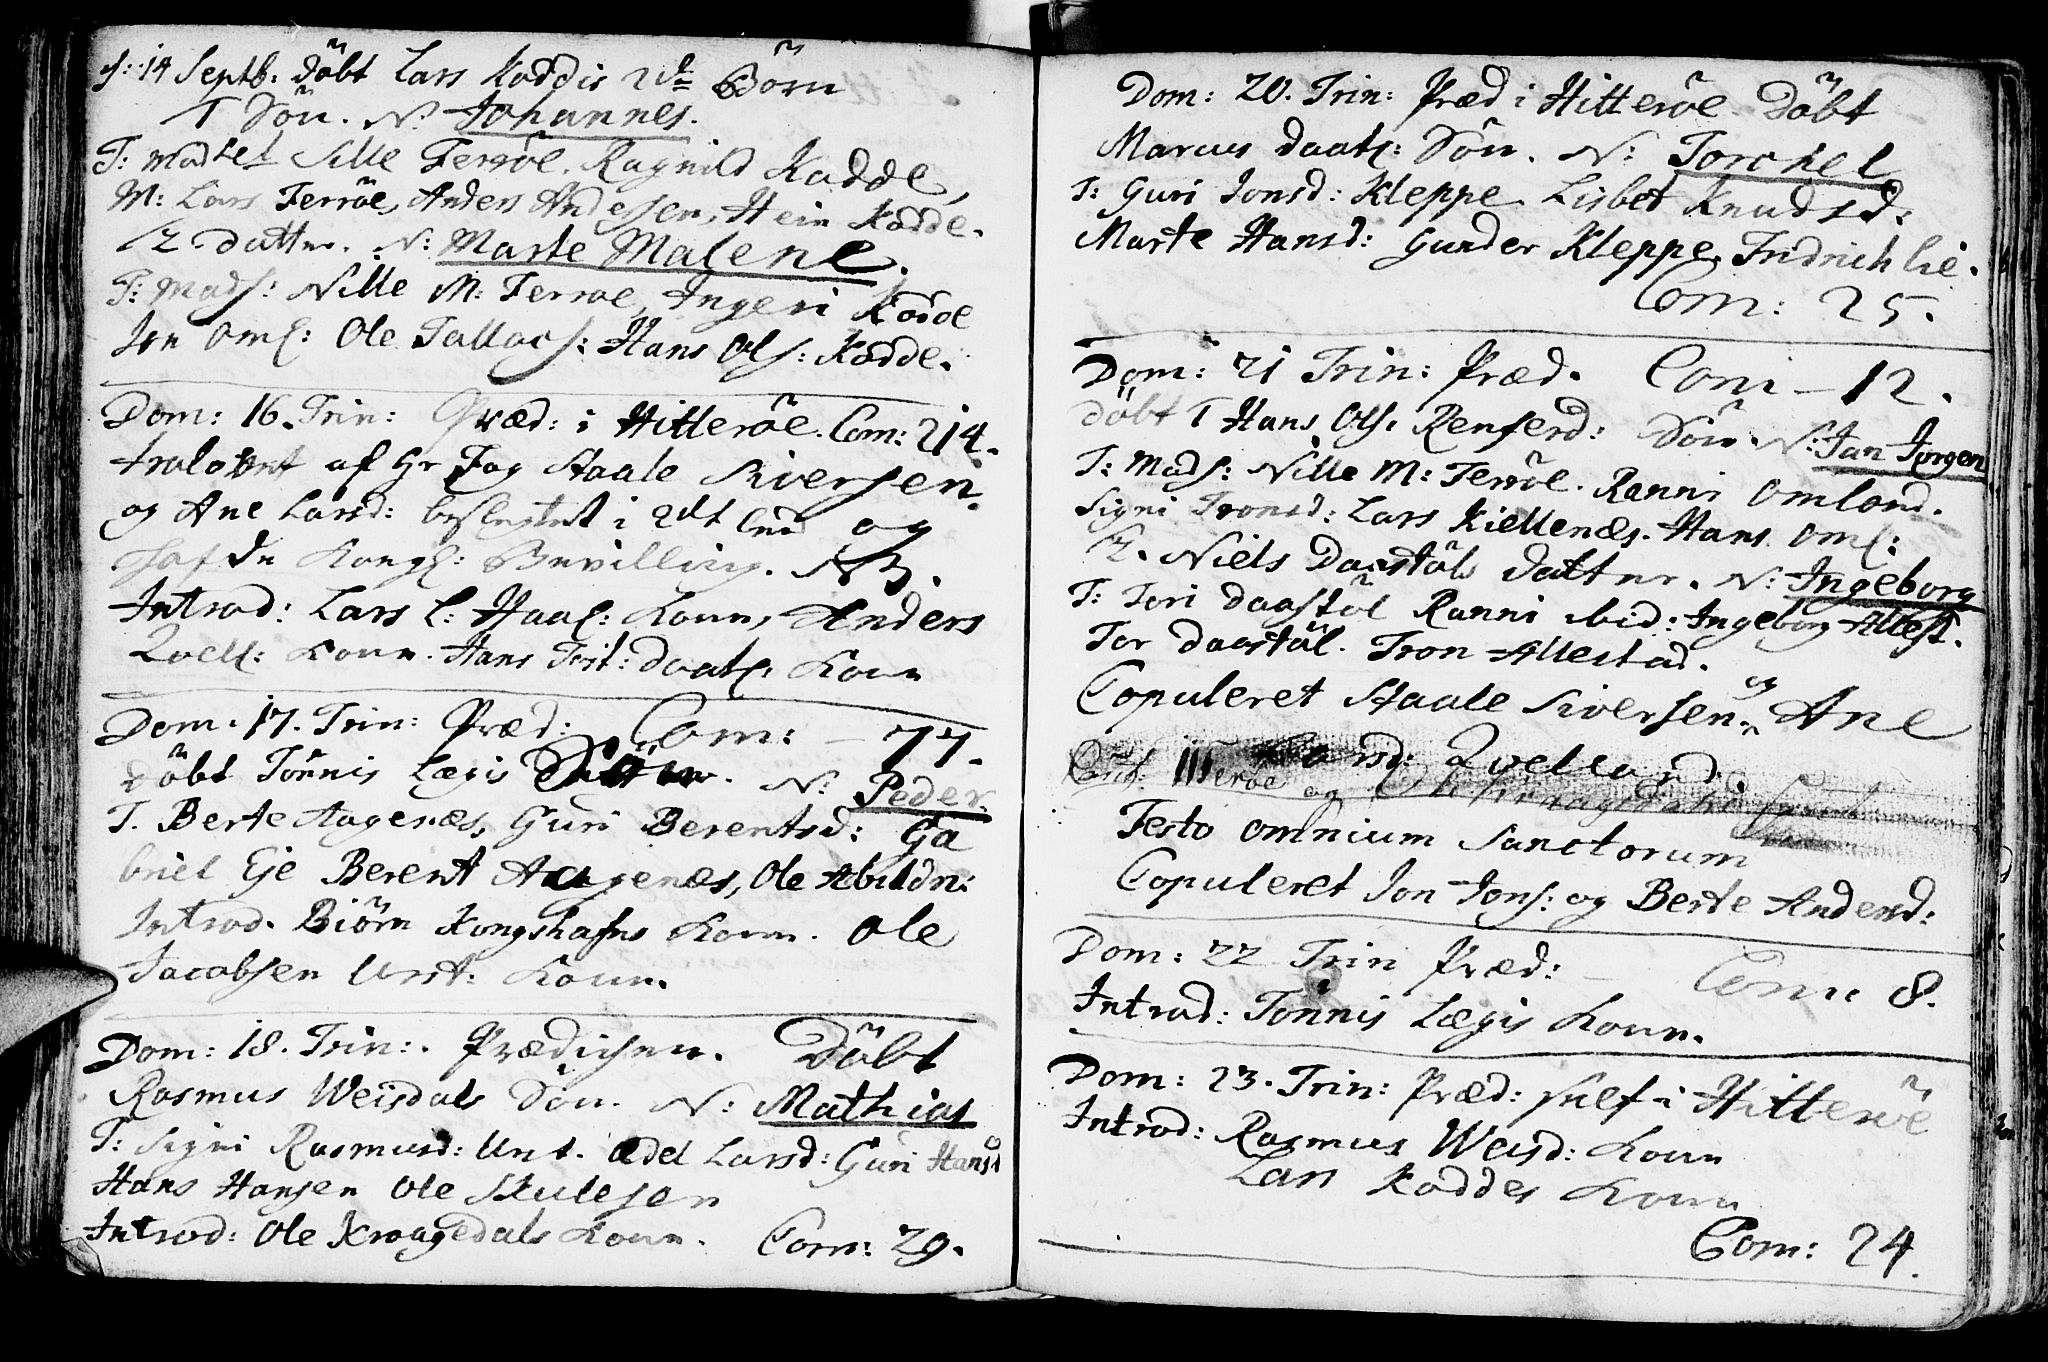 d: 14 Septb. döbt Lars Kaddis 2de Börn
1 Sön. N. Johannes.
T: Mad Sille Ferröe. Ragnild Kadde,
M: Lars Ferröe, Anders Andersen, Hein Kadde.
2 datter. N: Marte Malene.
T: Mads: Nille M: Ferröe, Ingeri Kadde
Jon Oml: Ole Tallacs: Hans Ols: Kadde.
Dom: 16. Trin: Præd: i Hitteröe. Com: 214.
trolovet af Hr Fog Staale Siversen
og Ane Larsd: beslegtet i 2det led og
hafde Kongl: Bevilling. NB.
Introd: Lars L: Haal: Koun, Anders
Qvell: Koun. Hans Trit: Daatl. Koun
Dom: 17. Trin: Præd: Com: – 77.
döbt Tönnis Lægis Sön. N: Peder.
T. Berte Aagenæs, Guri Berentsd: Ga
briel Eje Berent Aagenæs, Ole Abildn:
Introd. Biörn Kongshafns Koun. Ole
Jacobsen Urst: Koun.
Dom: 18. Trin:. Prædichen. Döbt
Rasmus Weisdals Sön. N: Mathias
T: Signi Rasmusd: Urst. Ædel Larsd: Guri Hansd
Hans Hansen Ole Skulesen
Introd: Ole Kraagedals Koun. Com: 29.
Dom: 20. Trin: Præd i Hitteröe Döbt
Marcus Daatl: Sön. N: Torckel
T: Guri Jonsd: Kleppe Lisbet Knudsd:
Marte Hansd: Gunder Kleppe. Fridrich Lie.
Com: 25.
Dom: 21 Trin: Præd. Com – 12.
döbt 1 Hans Ols. Renferd: Sön. N: Jan Jörgen
T: Mads: Nille M: Ferröe. Ranni Omland.
Signi Tronsd: Lars Kiellenæs. Hans Oml:
2. Niels Daastöls datter. N: Ingeborg
T: Tori Daastöl Ranni ibid: Ingeborg Allest.
Tor Daastöl. Tron Allestad.
Copuleret Staale Siversen og Ane
Larsd: Qvelland.
Festo omnium Sanctorum
Copuleret Jon Jons: og Berte Andersd:
Dom: 22 Trin Præd: – Com: 8.
Introd: Tönnis Lægis Koun.
Dom: 23. Trin: Præd: self i Hitteröe
Introd: Rasmus Weisd: Koun
Lars Kaddes Koun
Com: 24.